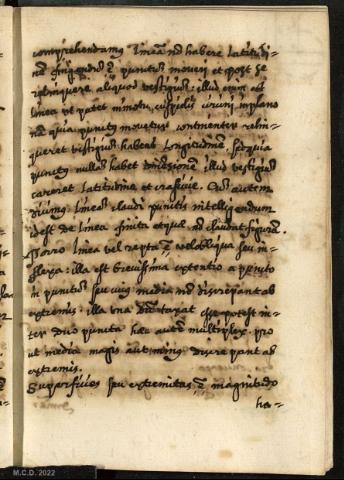 comprehendamus lineam nõ habere latitudi-
nẽ fingendus ẽ punctus moveri et post se
relinquere aliquod vestigium: illud enim est
linea ut patet in motu cuspidis in plano
nã quia punctus movetur continenter relin-
queret vestigium habens longitudinem, sed quia
punctus nullam habet dimensionem illud vestigium
careret latitudine et crasitie. Cum autem
dicimus lineas claudi punctis intelligendum
id est de linea finita atqui nõ claudit figuram.
Porro linea vel recta ẽ vel obliqua seu in-
flexa: illa est brevissima extentio a puncto
in punctum seu cuius media nõ discrepant ab
extremis. illa una dũtaxat esse potest in-
ter duo puncta haec autẽ multiplex pro
ut media magis aut minus discrepant ab
extremis.
Superficies seu extremitas ẽ magnitudo
ha-
M.C.D. 2022